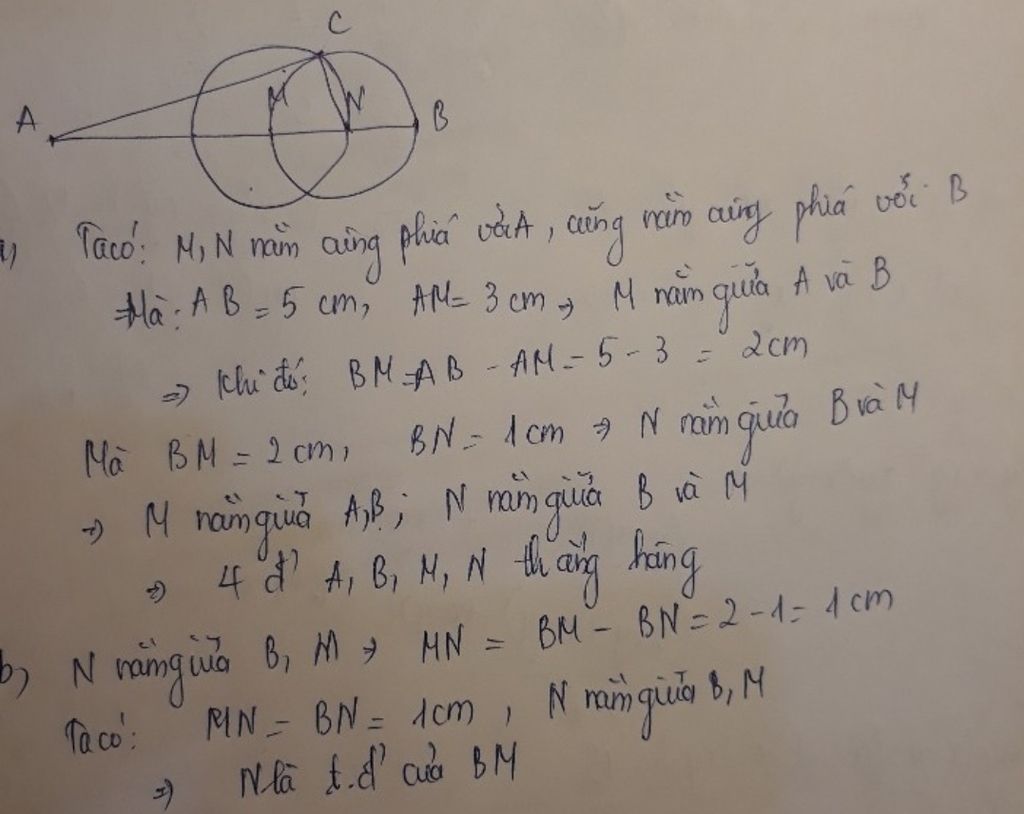 C
A
M
N
B
a) Ta có: M, N nằm cùng phía với A, cũng nằm cùng phía với B
Mà: AB = 5 cm, AM = 3 cm => M nằm giữa A và B
=> Khi đó: BM = AB - AM = 5 - 3 = 2cm
Mà BM = 2 cm, BN = 1 cm => N nằm giữa B và M
=> M nằm giữa A, B; N nằm giữa B và M
=> 4 đ' A, B, M, N thẳng hàng
b) N nằm giữa B, M => MN = BM - BN = 2 - 1 = 1 cm
Ta có: MN = BN = 1cm, N nằm giữa B, M
=> N là t.đ' của BM